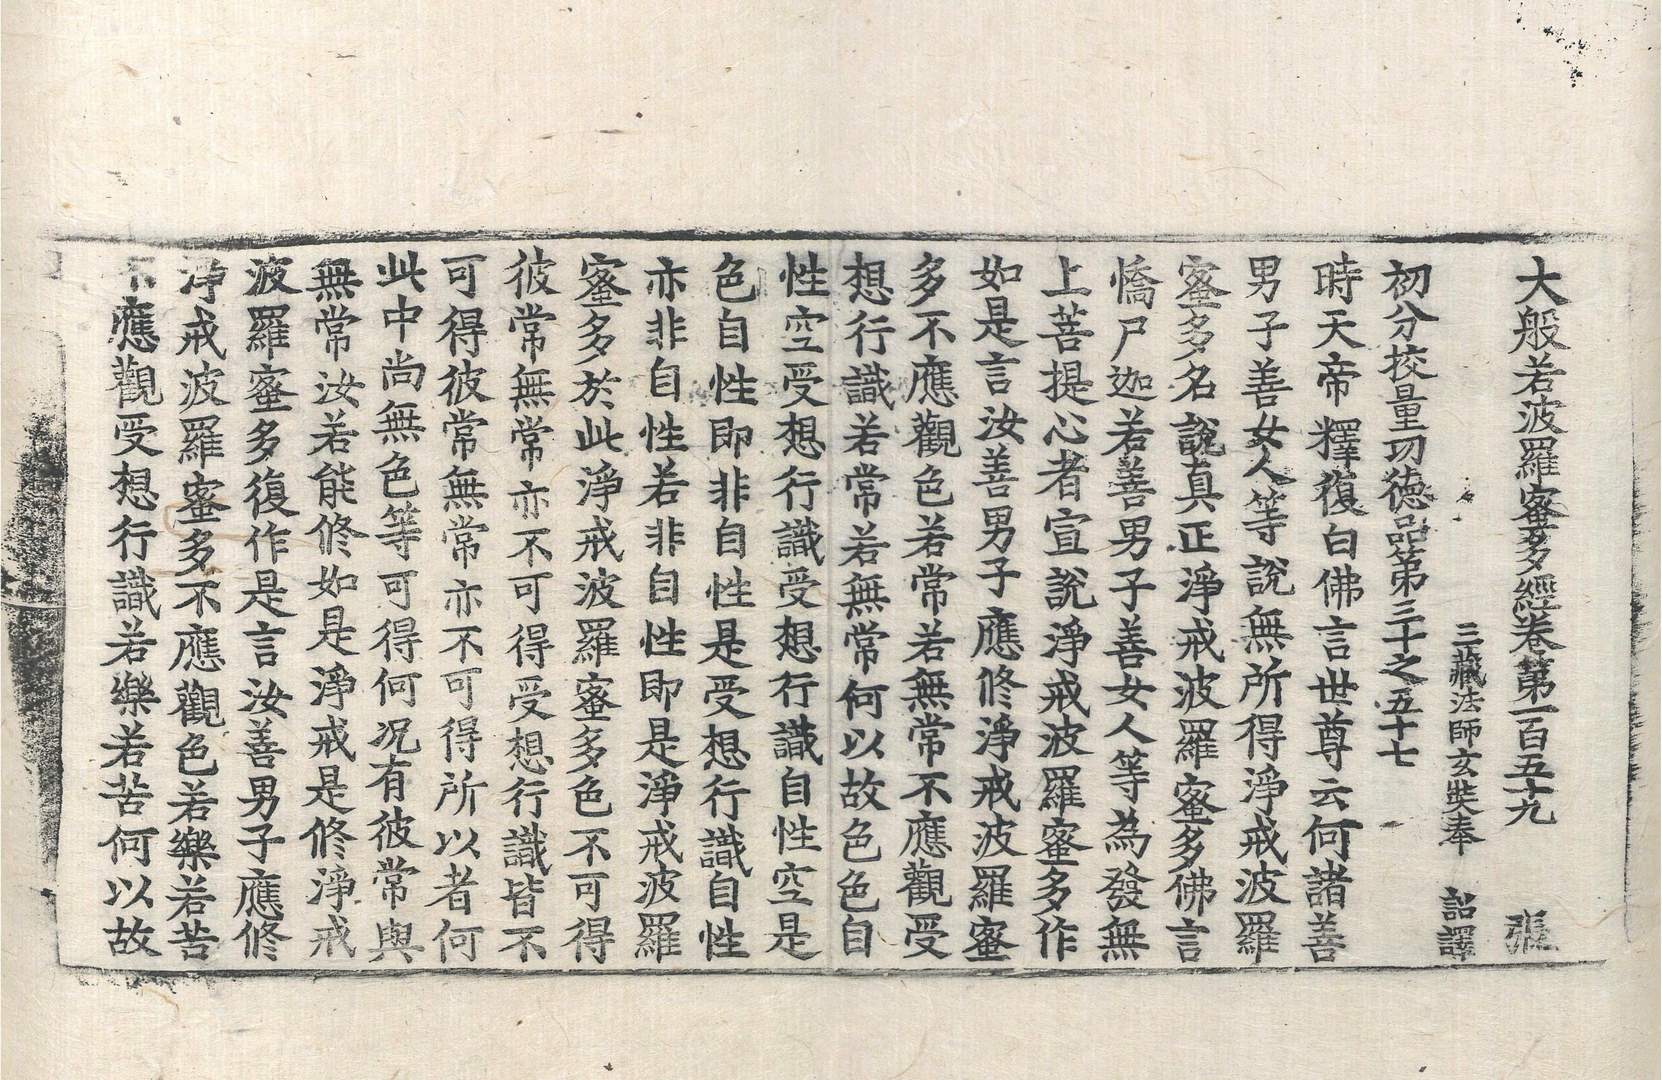 大般若波羅蜜多經卷第一百五十九 張
三藏法師玄奘奉 詔譯
初分挍量功德品第三十之五十七
時天帝釋復白佛言世尊云何諸善
男子善女人等說無所得淨戒波羅
蜜多名說真正淨戒波羅蜜多佛言
憍尸迦若善男子善女人等為發無
上菩提心者宣說淨戒波羅蜜多作
如是言汝善男子應修淨戒波羅蜜
多不應觀色若常若無常不應觀受
想行識若常若無常何以故色色自
性空受想行識受想行識自性空是
色自性即非自性是受想行識自性
亦非自性若非自性即是淨戒波羅
蜜多於此淨戒波羅蜜多色不可得
彼常無常亦不可得受想行識皆不
可得彼常無常亦不可得所以者何
此中尚無色等可得何況有彼常與
無常汝若能修如是淨戒是修淨戒
波羅蜜多復作是言汝善男子應修
淨戒波羅蜜多不應觀色若樂若苦
不應觀受想行識若樂若苦何以故